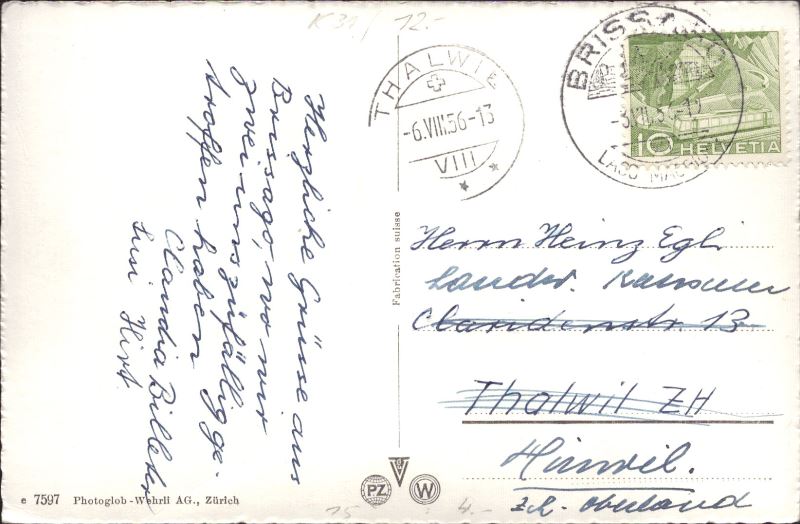 K31/ 12.-
THALWIL
-6.VIII.56-13
VIII
BRISSAGO
-3.VIII.56-12
LAGO MAGGIORE
10 HELVETIA
Herzliche Grüsse aus
Brissago, wo wir
zwei uns zufällig ge-
troffen haben
Claudia Billeter
Susi Hirt
Fabrication suisse
Herrn Heinz Egli
Landw.
Claridenstr. 13
Thalwil ZH
Hinwil.
Zch. Oberland
e 7597 Photoglob-Wehrli AG., Zürich
PZ
W
15
4.-